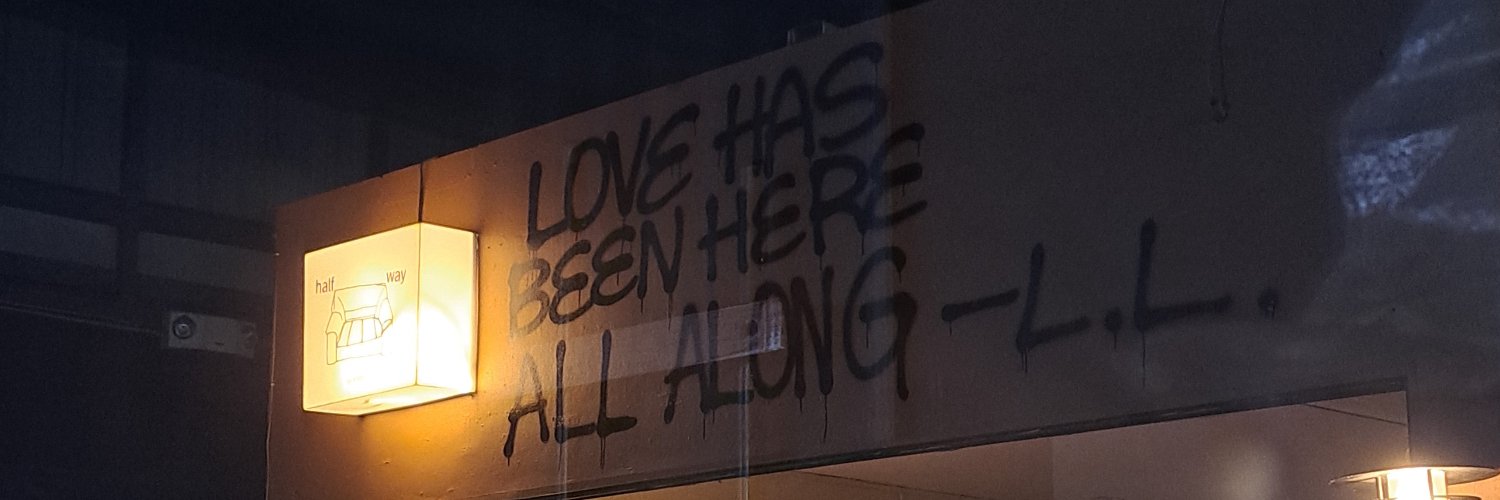 half way
LOVE HAS
BEEN HERE
ALL ALONG -L.L.